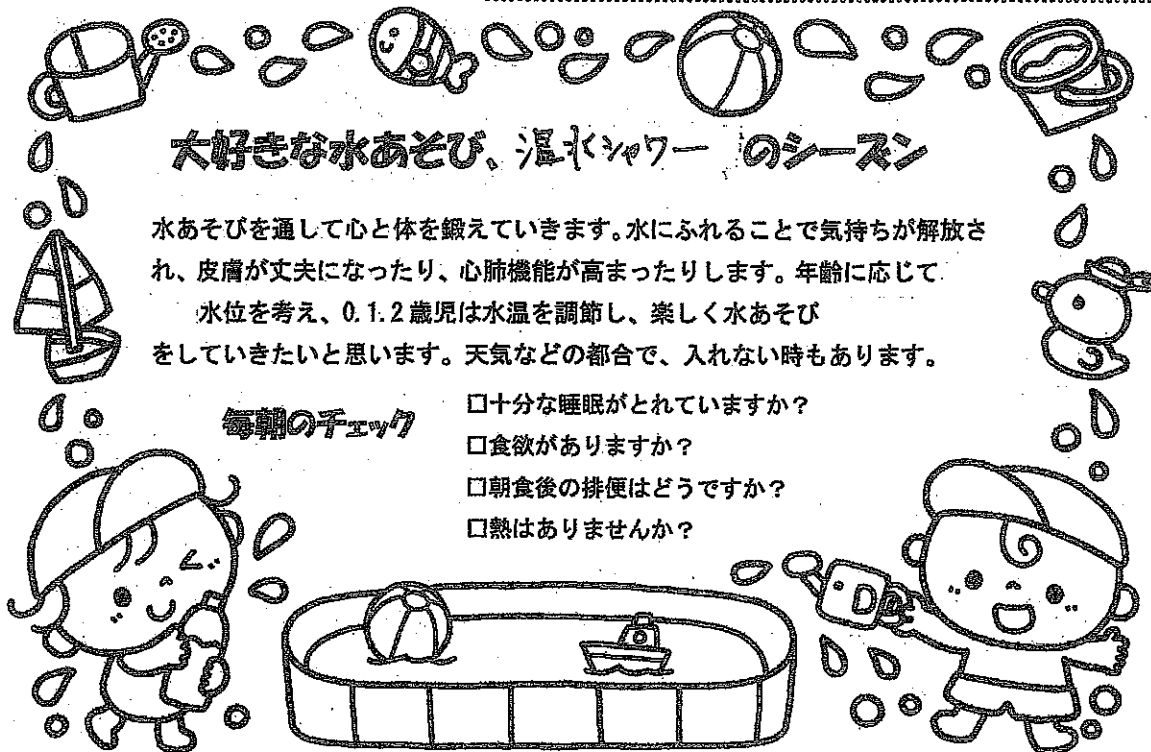 大好きな水あそび、温水シャワー のシーズン
水あそびを通して心と体を鍛えていきます。水にふれることで気持ちが解放さ
れ、皮膚が丈夫になったり、心肺機能が高まったりします。年齢に応じて
水位を考え、0.1.2歳児は水温を調節し、楽しく水あそび
をしていきたいと思います。天気などの都合で、入れない時もあります。
毎朝のチェック
□十分な睡眠がとれていますか？
□食欲がありますか？
□朝食後の排便はどうですか？
□熱はありませんか？